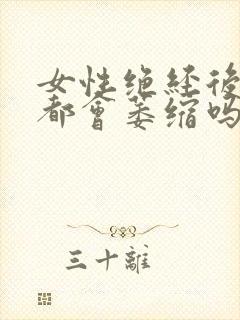 女性绝经後
都會萎缩吗
三十離